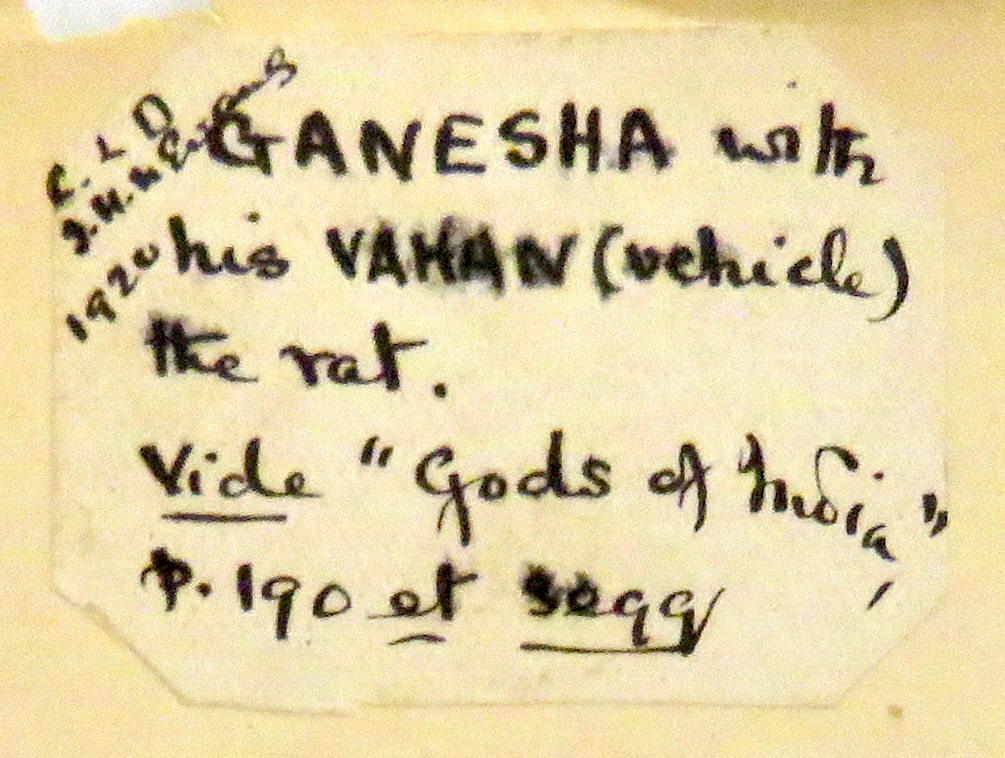 GANESHA with
his VAHAN (vehicle)
the rat.
Vide "Gods of India",
p. 190 et seqq
1920